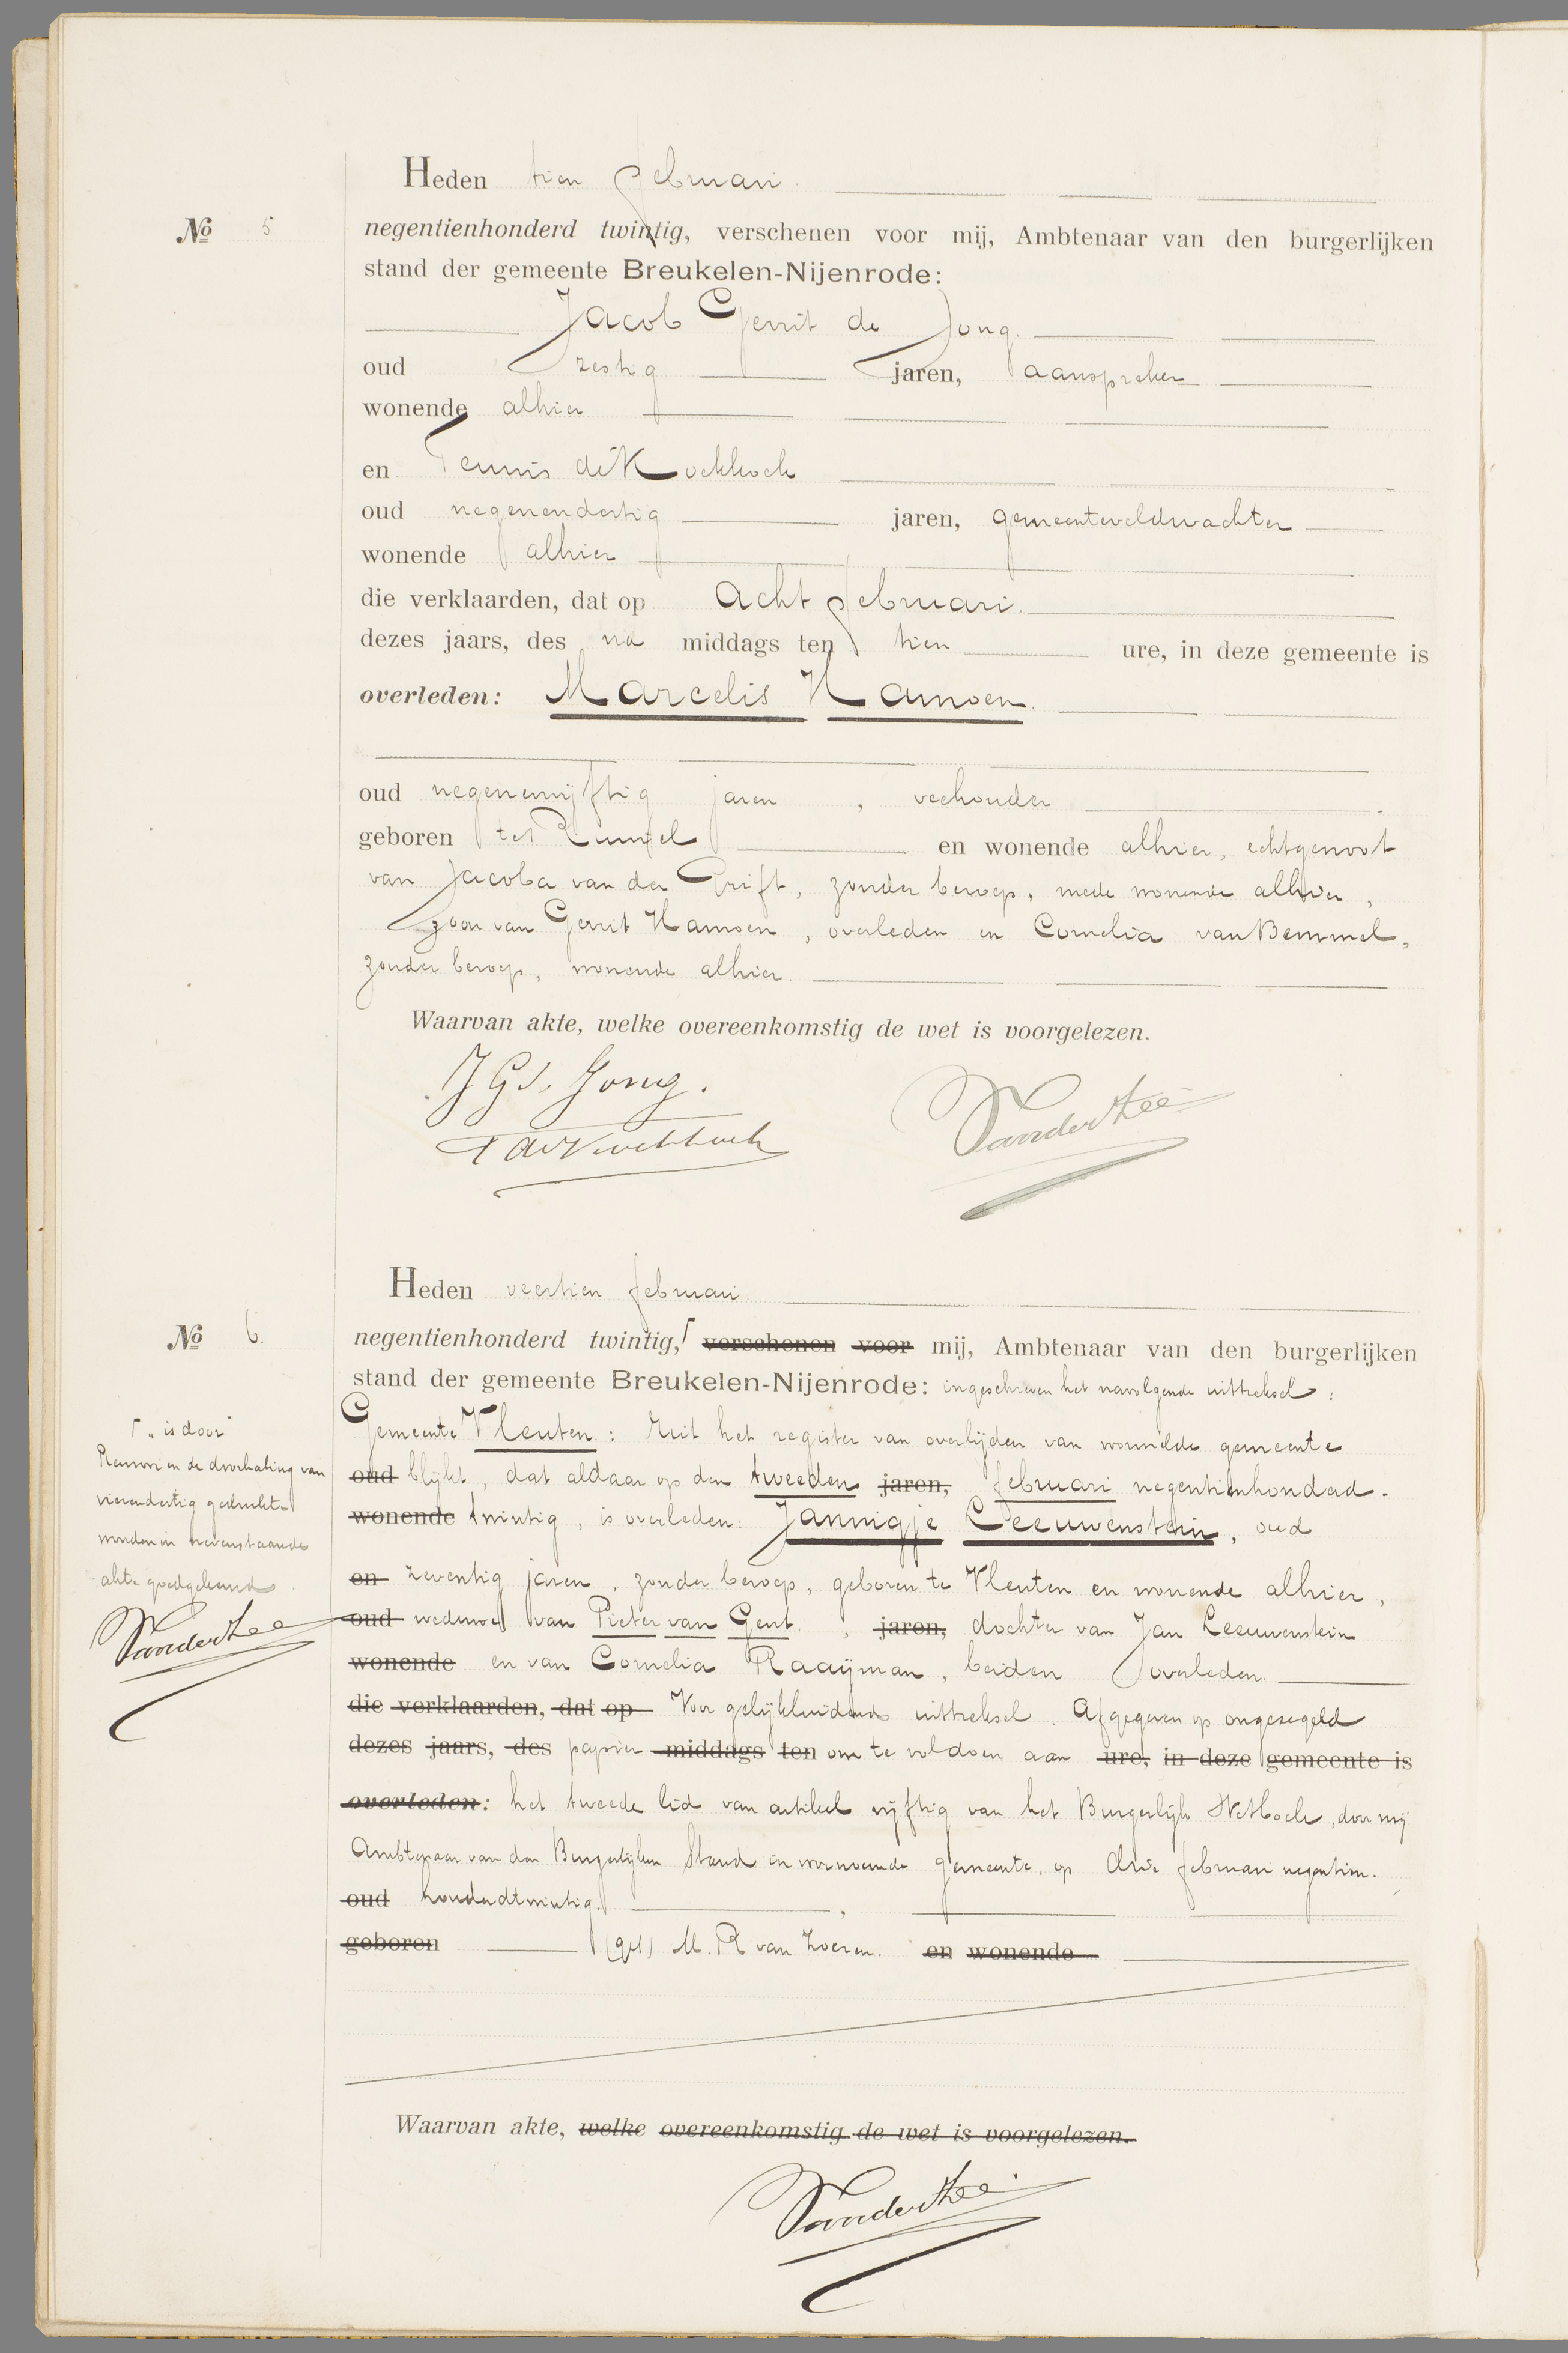 Heden tien februari
No 5
negentienhonderd twintig, verschenen voor mij, Ambtenaar van den burgerlijken
stand der gemeente Breukelen-Nijenrode:
Jacob Gerrit de Jong
oud zestig jaren, aanspreker
wonende alhier
en Teunis de Kockkoek
oud negenendertig jaren, gemeenteveldwachter
wonende alhier
die verklaarden, dat op acht februari
dezes jaars, des na middags ten tien ure, in deze gemeente is
overleden: Marcelis Hamoen.
oud negenenvijftig jaren, veehouder
geboren te en wonende alhier, echtgenoot
van Jacoba van der Grift, zonder beroep, mede wonende alhier,
zoon van Gerrit Hamoen, overleden en Cornelia van Bemmel,
zonder beroep, wonende alhier.
Waarvan akte, welke overeenkomstig de wet is voorgelezen.
JGd. Jong.
Vanderzee
Heden veertien februari
No 6.
negentienhonderd twintig,⌈ verschenen voor mij, Ambtenaar van den burgerlijken
stand der gemeente Breukelen-Nijenrode: ingeschreven het navolgende uittreksel:
Gemeente Vleuten: Uit het register van overlijden van voormelde gemeente
oud blijkt, dat aldaar op den tweeden jaren, februari negentienhonderd-
wonende twintig, is overleden: Jannigje Leeuwenstein, oud
en zeventig jaren, zonder beroep, geboren te Vleuten en wonende alhier,
oud weduwe van Pieter van Gent, jaren, dochter van Jan Leeuwenstein
wonende en van Cornelia Raaijman, beiden overleden.
die verklaarden, dat op Voor gelijkluidend uittreksel. Afgegeven op ongezegeld
dezes jaars, des papier middags ten om te voldoen aan ure, in deze gemeente is
overleden: het tweede lid van artikel vijftig van het Burgerlijk Wetboek, door mij
Ambtenaar van den Burgerlijken Stand in voornoemde gemeente, op drie februari negentien-
oud honderdtwintig.
geboren (get) M. R van Zoeren. en wonende
⌈ „ is door"
en de doorhaling van
vierendertig gedrukte
woorden in nevenstaande
akte goedgekeurd
Vanderzee
Waarvan akte, welke overeenkomstig de wet is voorgelezen.
Vanderzee